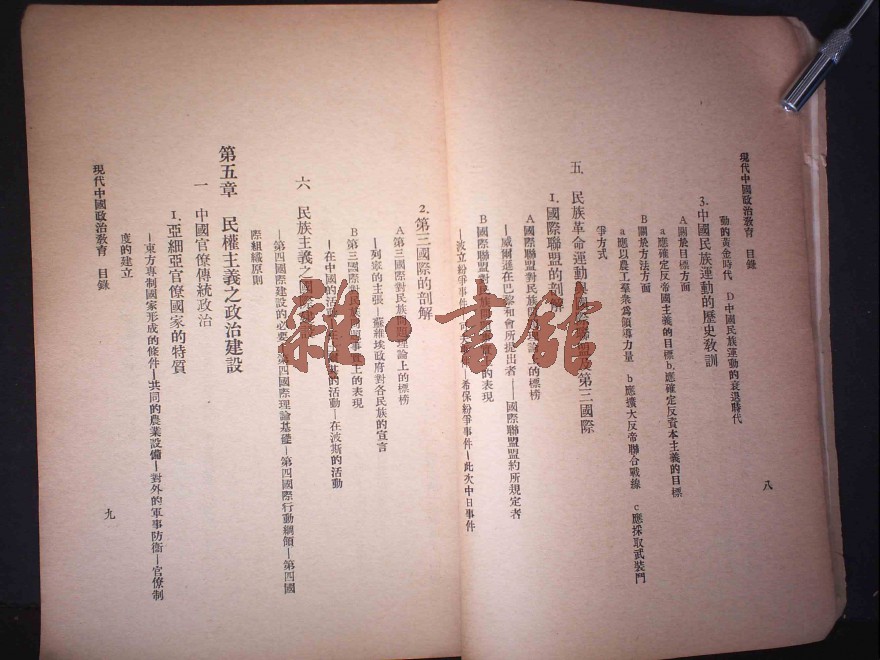 現代中國政治教育　目錄
動的黃金時代　D中國民族運動的衰退時代
3.中國民族運動的歷史教訓
A關於目標方面
a應確定反帝國主義的目標b.應確定反資本主義的目標
B關於方法方面
a應以農工羣衆爲領導力量　b應擴大反帝聯合戰線　c應採取武裝鬥
爭方式
五　民族革命運動與國際聯盟及第三國際
1.國際聯盟的剖解
A國際聯盟對民族問題理論上的標榜
—威爾遜在巴黎和會所提出者——國際聯盟盟約所規定者
B國際聯盟對民族問題事實上的表現
—波立紛爭事件—希保紛爭事件—此次中日事件
八
2.第三國際的剖解
A第三國際對民族問題理論上的標榜
—列寧的主張—蘇維埃政府對各民族的宣言
B第三國際對民族問題事實上的表現
—在中國的活動—的活動—在波斯的活動
六　民族主義之國際
—第四國際建設的必要—第四國際理論基礎—第四國際行動綱領—第四國
際組織原則
第五章　民權主義之政治建設
一　中國官僚傳統政治
1.亞細亞官僚國家的特質
—東方專制國家形成的條件—共同的農業設備—對外的軍事防衞—官僚制
度的建立
現代中國政治教育　目錄
九
雜·書館